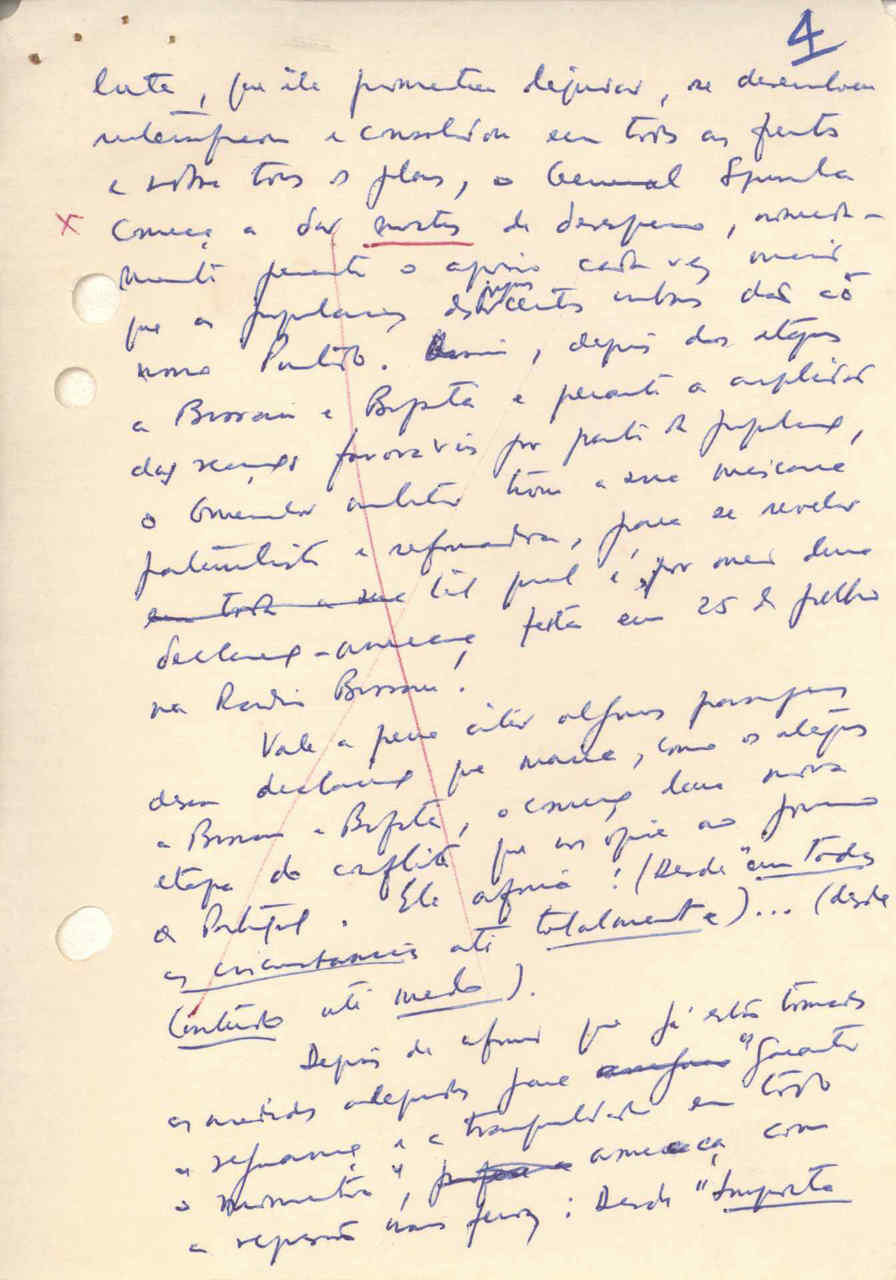 4
luta, que ele prometeu dejuiar, se desenvolveu
intensificou e consolidou em todas as frentes
e sobre todos os planos, o General Spinola
x começa a dar mostras de desespero, nomeada-
mente perante o apoio cada vez maior
que as populações dos centros urbanos dão ao
nosso Partido. Assim, depois dos ataques
a Bissau e Bafatá e perante a amplidão
das reacções favoráveis por parte da população,
o Governador militar tirou a sua máscara
paternalista e reformadora, para se revelar
em toda a sua tal qual é, por meio duma
declaração-ameaça feita em 25 de Julho
na Radio Bissau.
Vale a pena citar algumas passagens
dessa declaração que marca, como os ataques
a Bissau e Bafatá, o começo duma nova
etapa do conflito que nos opõe ao governo
de Portugal. Ele afirma: (Desde "em todas
as circunstancias até totalmente)... (desde
Contudo até medo).
Depois de afirmar que já estão tomadas
as medidas adequadas para "garantir
a segurança e a tranquilidade em todo
o momento", ameaça com
a repressão mais feroz: Desde "Importa